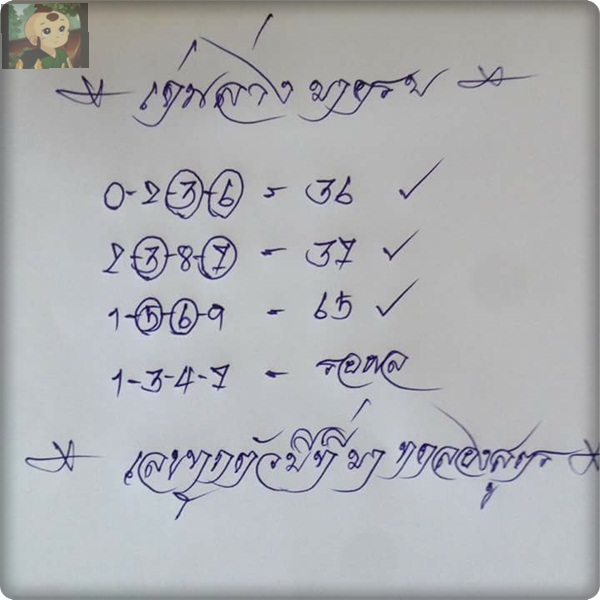 เด่นล่าง มาครบ
0-2-3-6 = 36 ✓
2-3-8-7 = 37 ✓
1-5-6-9 = 65 ✓
1-3-4-7 = รอผล
เลขทุกตัวมีที่มา ทดลองสูตร